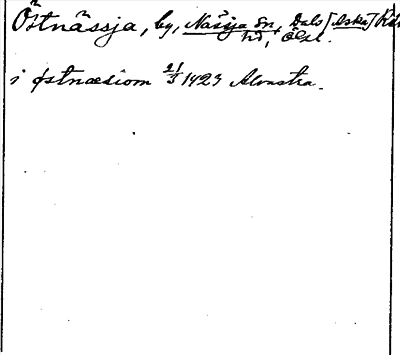 Östnässja, by, Nässja sn, Dals [Aska]
hd, Ögl.
i østnæsiom 21/5 1423 Alvastra.